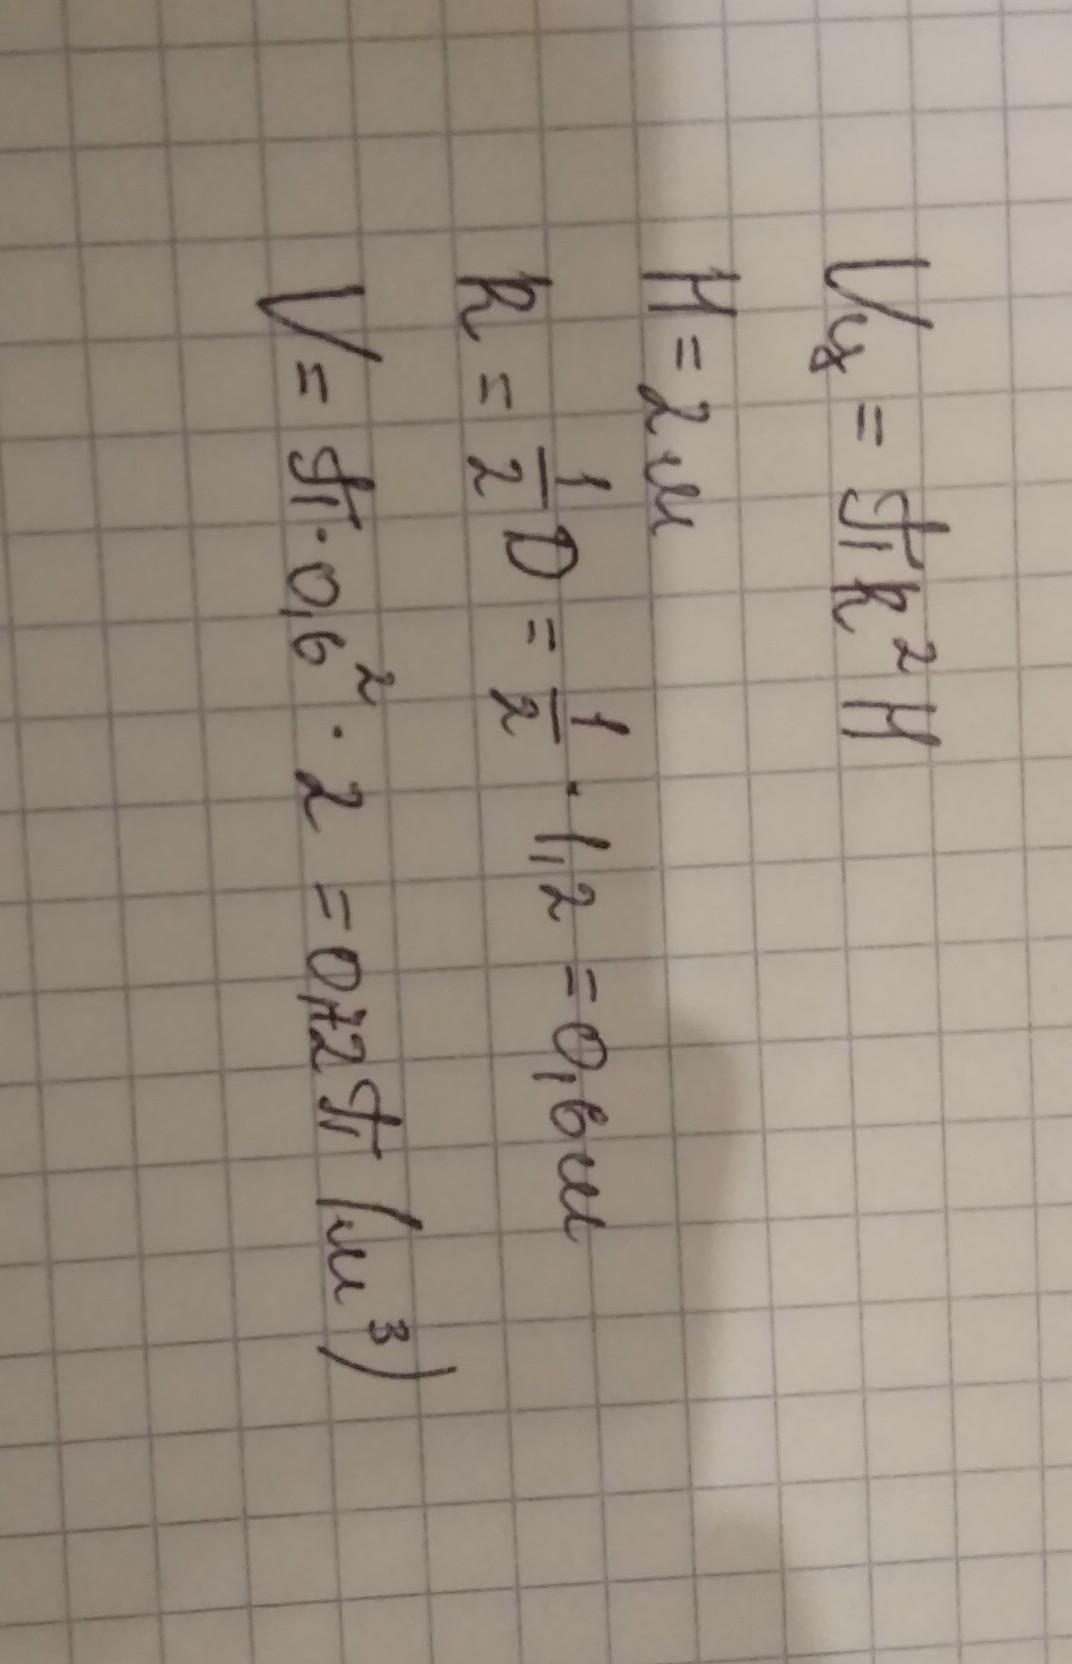 Vц = πR²H
H = 2 м
R = 1/2 D = 1/2 · 1,2 = 0,6 м
V = π · 0,6² · 2 = 0,72π (м³)